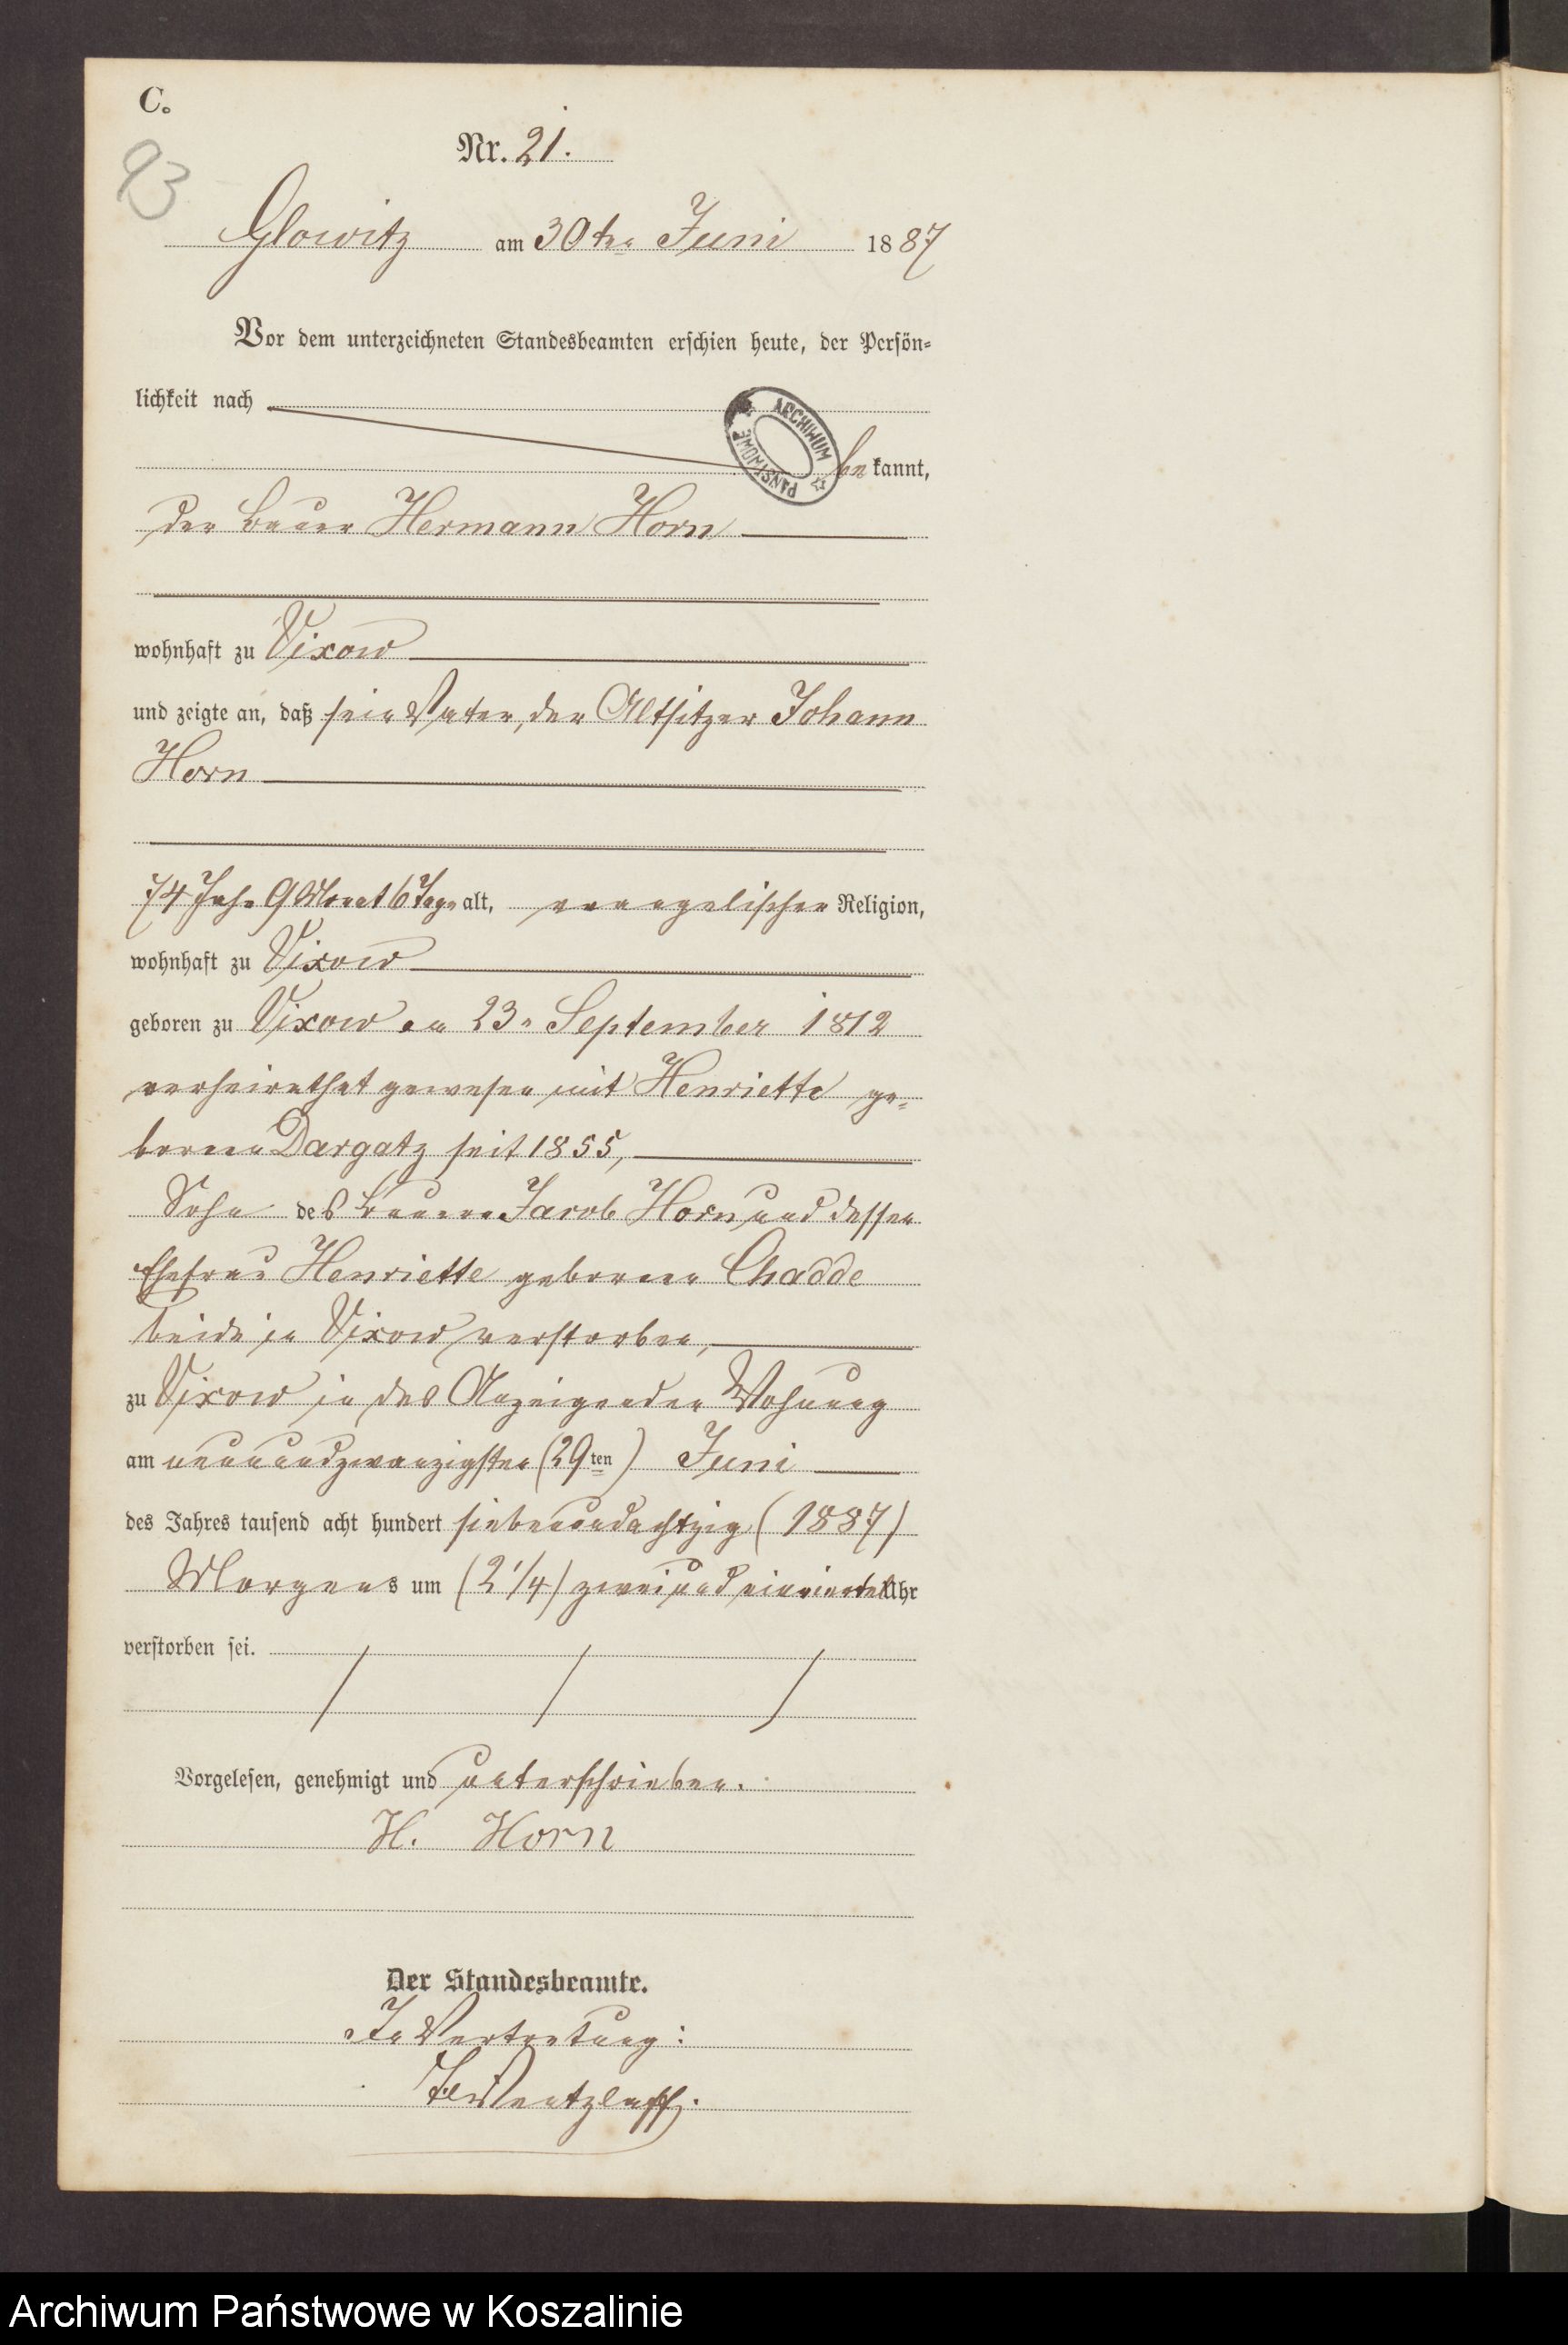 C.
93
Nr. 21.
Glowitz am 30ten Juni 1887
Vor dem unterzeichneten Standesbeamten erschien heute, der Persön-
lichkeit nach
ARCHIWUM PAŃSTWOWE
bekannt,
der Bauer Hermann Horn
wohnhaft zu Vixow
und zeigte an, daß sein Vater, der Altsitzer Johann
Horn
74 Jahr 9 Monat 6 Tage alt, evangelischer Religion,
wohnhaft zu Vixow
geboren zu Vixow am 23n September 1812
verheirathet gewesen mit Henriette ge-
borenen Dargatz seit 1855,
Sohn des Bauern Jacob Horn und dessen
Ehefrau Henriette geborenen Chadde
beide in Vixow verstorben,
zu Vixow in des Anzeigenden Wohnung
am neunundzwanzigsten (29ten) Juni
des Jahres tausend acht hundert siebenundachtzig (1887)
Morgens um (2 1/4) zwei und einviertel Uhr
verstorben sei.
Vorgelesen, genehmigt und unterschrieben.
H. Horn
Der Standesbeamte.
In Vertretung:
Wentzlaff.
Archiwum Państwowe w Koszalinie